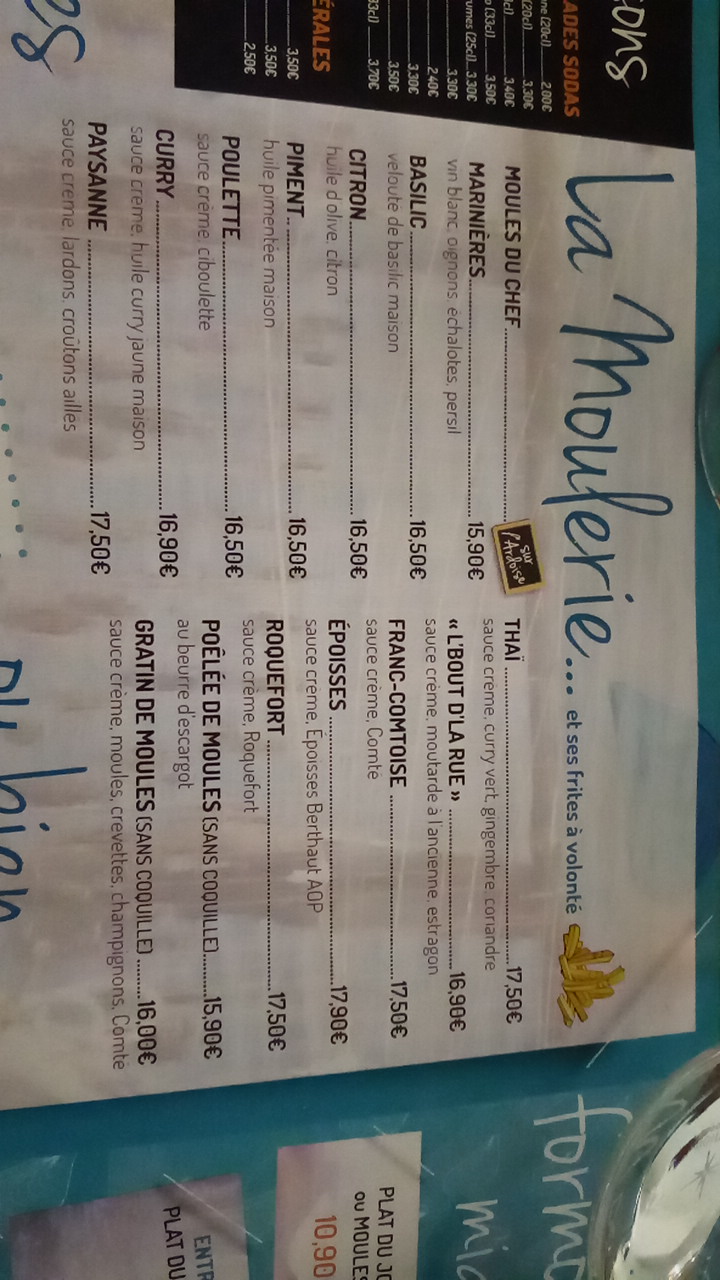 La Moulerie... et ses frites à volonté
MOULES DU CHEF sur l'Ardoise
MARINIÈRES 15,90€
vin blanc, oignons, échalotes, persil
BASILIC 16,50€
velouté de basilic maison
CITRON 16,50€
huile d'olive, citron
PIMENT 16,50€
huile pimentée maison
POULETTE 16,50€
sauce crème, ciboulette
CURRY 16,90€
sauce crème, huile curry jaune maison
PAYSANNE 17,50€
sauce crème, lardons, croûtons aillés
THAÏ 17,50€
sauce crème, curry vert, gingembre, coriandre
« L'BOUT D'LA RUE » 16,90€
sauce crème, moutarde à l'ancienne, estragon
FRANC-COMTOISE 17,50€
sauce crème, Comté
ÉPOISSES 17,90€
sauce crème, Époisses Berthaut AOP
ROQUEFORT 17,50€
sauce crème, Roquefort
POÊLÉE DE MOULES (SANS COQUILLE) 15,90€
au beurre d'escargot
GRATIN DE MOULES (SANS COQUILLE) 16,00€
sauce crème, moules, crevettes, champignons, Comté
ADES SODAS
(20cl) 2,00€
(20cl) 3,30€
3,40€
(33cl) 3,50€
(25cl) 3,30€
3,30€
2,40€
3,30€
3,50€
3,70€
ÉRALES
3,50€
3,50€
2,50€
PLAT DU JO
ou MOULES
10,90
ENTR
PLAT DU